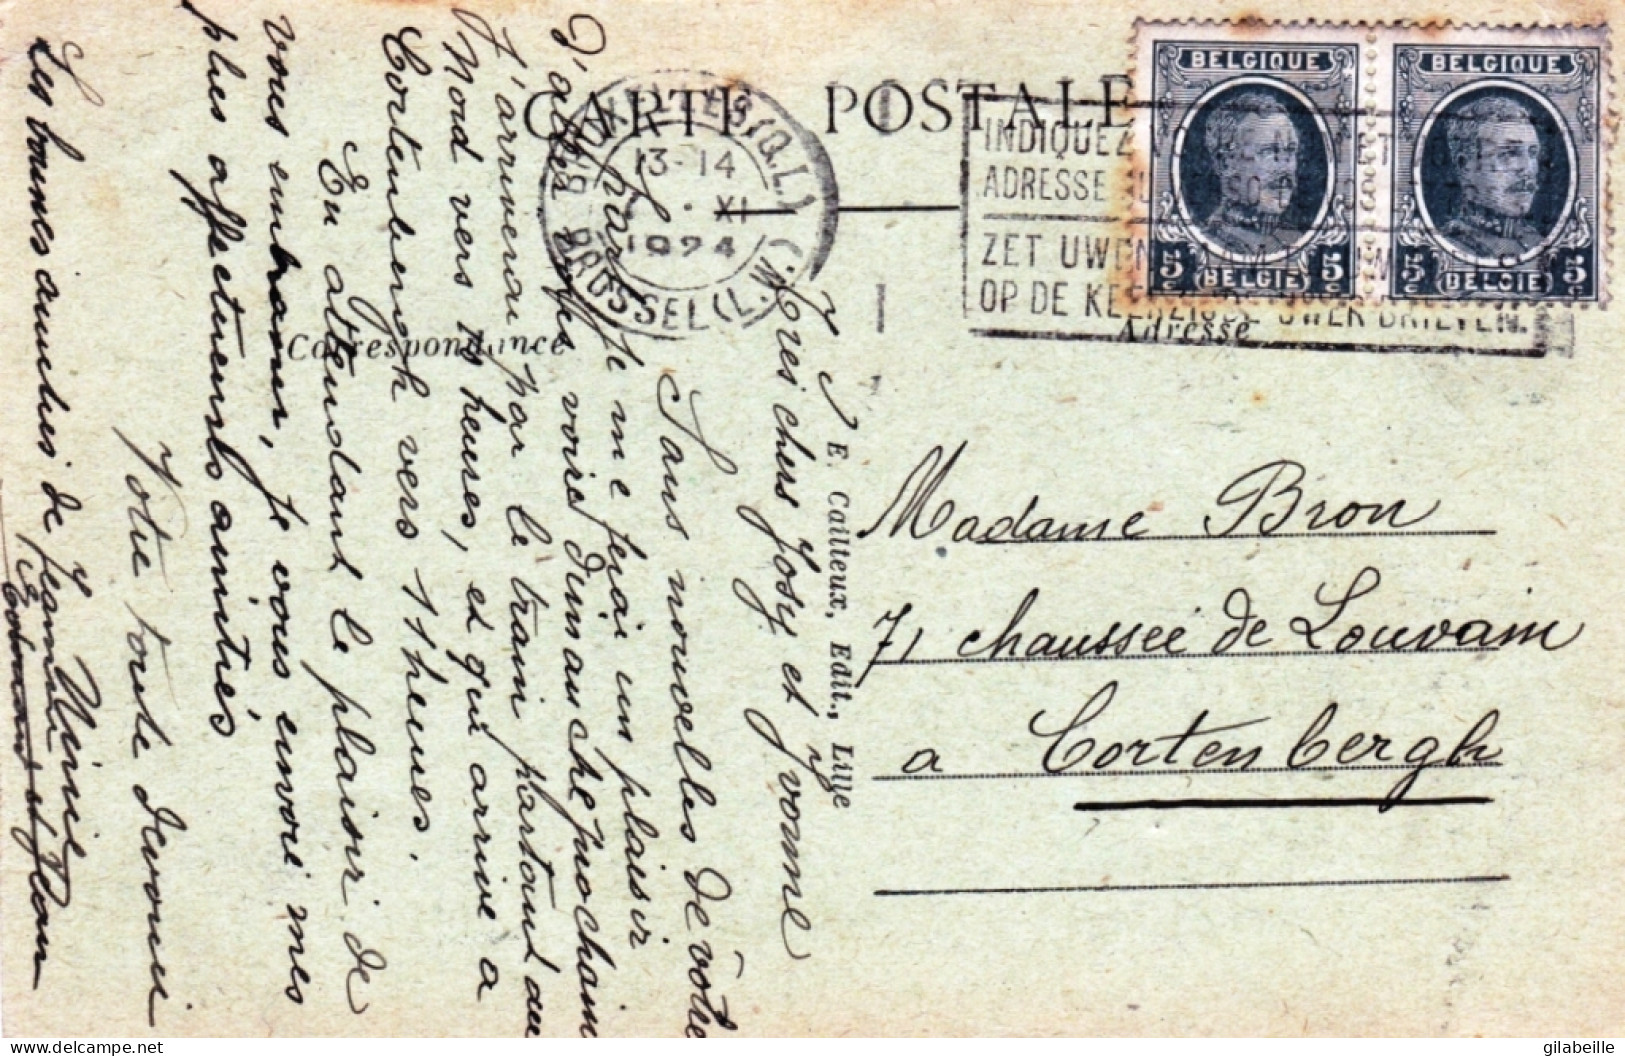 CARTE POSTALE
BELGIQUE
BELGIQUE
5c BELGIË 5c
5c BELGIË 5c
BRUXILLES (Q.L.)
13-14
XI
1924
BRUSSEL (L.W.)
INDIQUEZ
ADRESSE AU VERSO DE
ZET UWEN
OP DE KEERZIJDE UWER BRIEVEN.
Correspondance
Adresse
E. Cailteux, Edit., Lille
Très chers Josy et Yvonne
Sans nouvelles de votre
part, je me ferai un plaisir
d'aller vous voir Dimanche prochain
J'arriverai par le train partant du
Nord vers 10 heures, et qui arrive a
Cortenbergh vers 11 heures.
En attendant le plaisir de
vous embrasser, je vous envoi mes
plus affectueuses amitiés
Votre toute devouée
Ninie
Les bonnes amitiés de Jeanne
Edmond et Jean
Madame Bron
71 chaussée de Louvain
a Cortenbergh
gilabeille